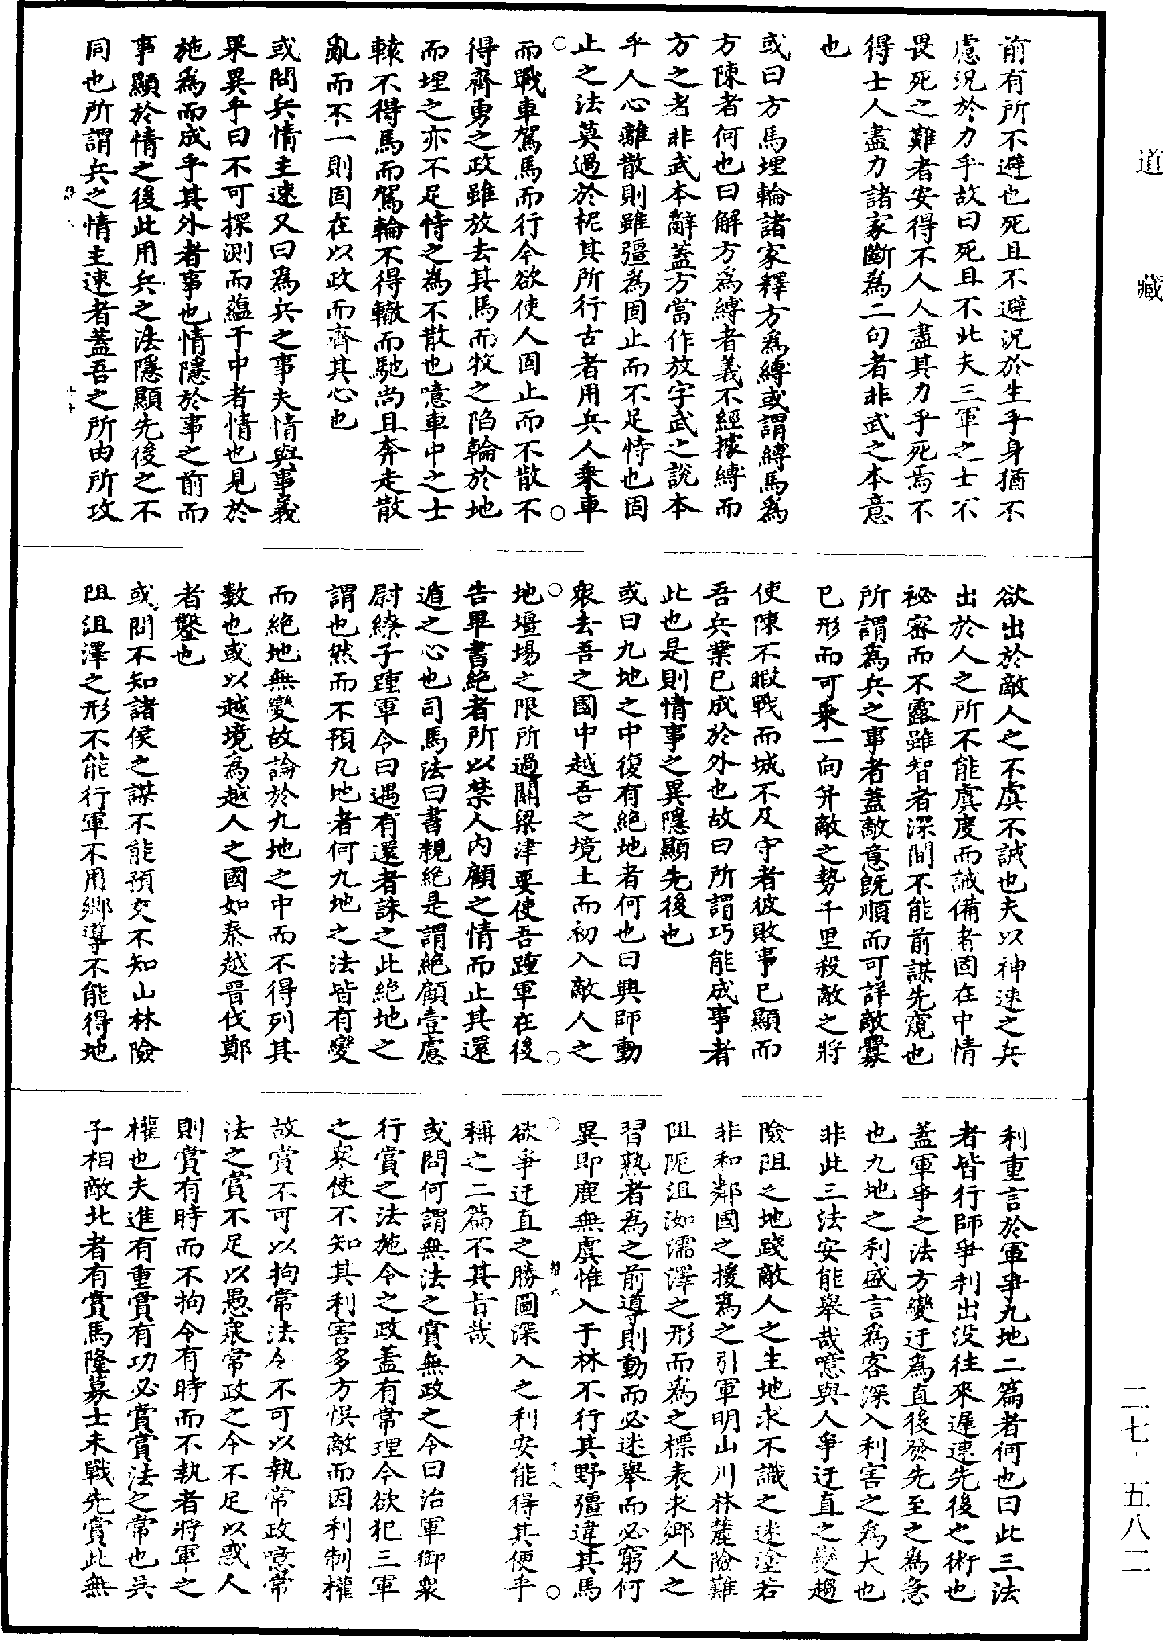 道藏
前有所不避也死且不避況於生乎身猶不
慮況於力乎故曰死且不北夫三軍之士不
畏死之難者安得不人人盡其力乎死焉不
得士人盡力諸家斷為二句者非武之本意
也
或曰方馬埋輪諸家釋方為縛或謂縛馬為
方陳者何也曰解方為縛者義不經據縛而
方之者非武本辭蓋方當作放字武之說本
乎人心離散則雖彊為固止而不足恃也固
止之法莫過於柅其所行古者用兵人乗車
而戰車駕馬而行今欲使人固止而不散不
得齊勇之政雖放去其馬而牧之陷輪於地
而埋之亦不足恃之為不散也噫車中之士
轅不得馬而駕輪不得轍而馳尚且奔走散
亂而不一則固在以政而齊其心也
或問兵情主速又曰為兵之事夫情與事義
果異乎曰不可探測而蘊于中者情也見於
施為而成乎其外者事也情隱於事之前而
事顯於情之後此用兵之法隱顯先後之不
同也所謂兵之情主速者蓋吾之所由所攻
欲出於敵人之不虞不誡也夫以神速之兵
出於人之所不能虞度而誡備者固在中情
祕密而不露雖智者深間不能前謀先窺也
所謂為兵之事者蓋敵意既順而可詳敵釁
已形而可乘一向并敵之勢千里殺敵之將
使陳不暇戰而城不及守者彼敗事已顯而
吾兵業已成於外也故曰所謂巧能成事者
此也是則情事之異隱顯先後也
或曰九地之中復有絕地者何也曰興師動
衆去吾之國中越吾之境土而初入敵人之
地壃埸之限所過關梁津要使吾踵軍在後
告畢書絕者所以禁人內顧之情而止其還
遁之心也司馬法曰書親絕是謂絕顧壹慮
尉繚子踵軍令曰遇有還者誅之此絕地之
謂也然而不預九地者何九地之法皆有變
而絕地無變故論於九地之中而不得列其
數也或以越境為越人之國如秦越晉伐鄭
者鑿也
或問不知諸侯之謀不能預交不知山林險
阻沮澤之形不能行軍不用鄉導不能得地
利重言於軍爭九地二篇者何也曰此三法
者皆行師爭利出沒往來遲速先後之術也
蓋軍爭之法方變迂為直後發先至之為急
也九地之利盛言為客深入利害之為大也
非此三法安能舉哉噫與人爭迂直之變趨
險阻之地踐敵人之生地求不識之迷塗若
非和鄰國之援為之引軍明山川林麓險難
阻阨沮洳濡澤之形而為之標表求鄉人之
習熟者為之前導則動而必迷舉而必窮何
異即鹿無虞惟入于林不行其野彊違其馬
欲爭迂直之勝圖深入之利安能得其便乎
稱之二篇不其旨哉
或問何謂無法之賞無政之令曰治軍御衆
行賞之法施令之政蓋有常理今欲犯三軍
之衆使不知其利害多方悞敵而因利制權
故賞不可以拘常法令不可以執常政噫常
法之賞不足以愚衆常政之令不足以惑人
則賞有時而不拘令有時而不執者將軍之
權也夫進有重賞有功必賞賞法之常也吳
子相敵北者有賞馬隆募士未戰先賞此無
二七·五八二